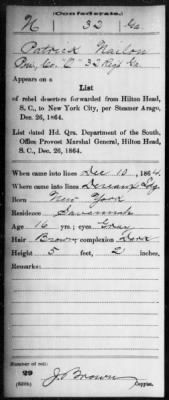 (Confederate.)
N 32 Ga
Patrick Nailon
Pvt, Co. "C" 32 Regt Ga.
Appears on a
List
of rebel deserters forwarded from Hilton Head,
S. C., to New York City, per Steamer Arago,
Dec. 26, 1864.
List dated Hd. Qrs. Department of the South,
Office Provost Marshal General, Hilton Head,
S. C., Dec. 26, 1864.
When came into lines Dec 10, 1864.
Where came into lines
Born New York
Residence Savannah
Age 16 yrs.; eyes Gray
Hair Brown; complexion Dark
Height 5 feet, 2 inches.
Remarks:
Number of roll:
29
J. Brown
Copyist.